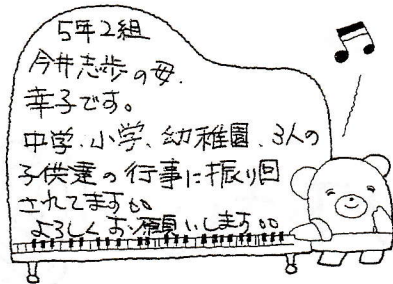 5年2組
今井志歩の母.
幸子です。
中学、小学、幼稚園、3人の
子供達の行事に振り回
されてます。。
よろしくお願いします。。